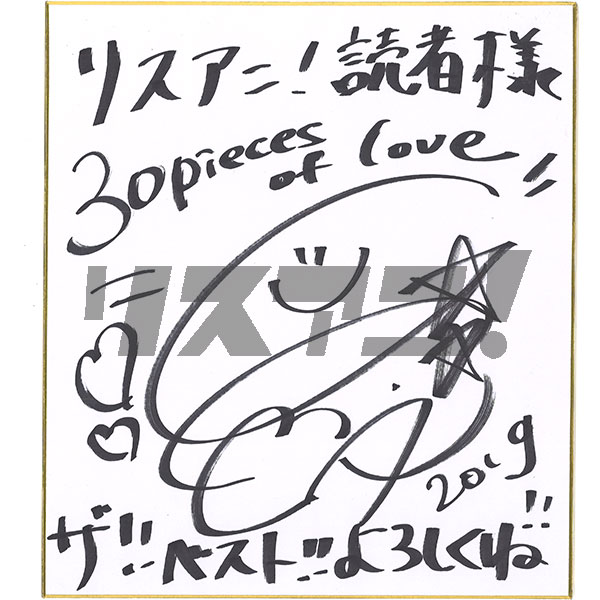 リスアニ!読者様
30pieces
of love
リスアニ!
2019
ザ!!ベスト!!よろしくね!!